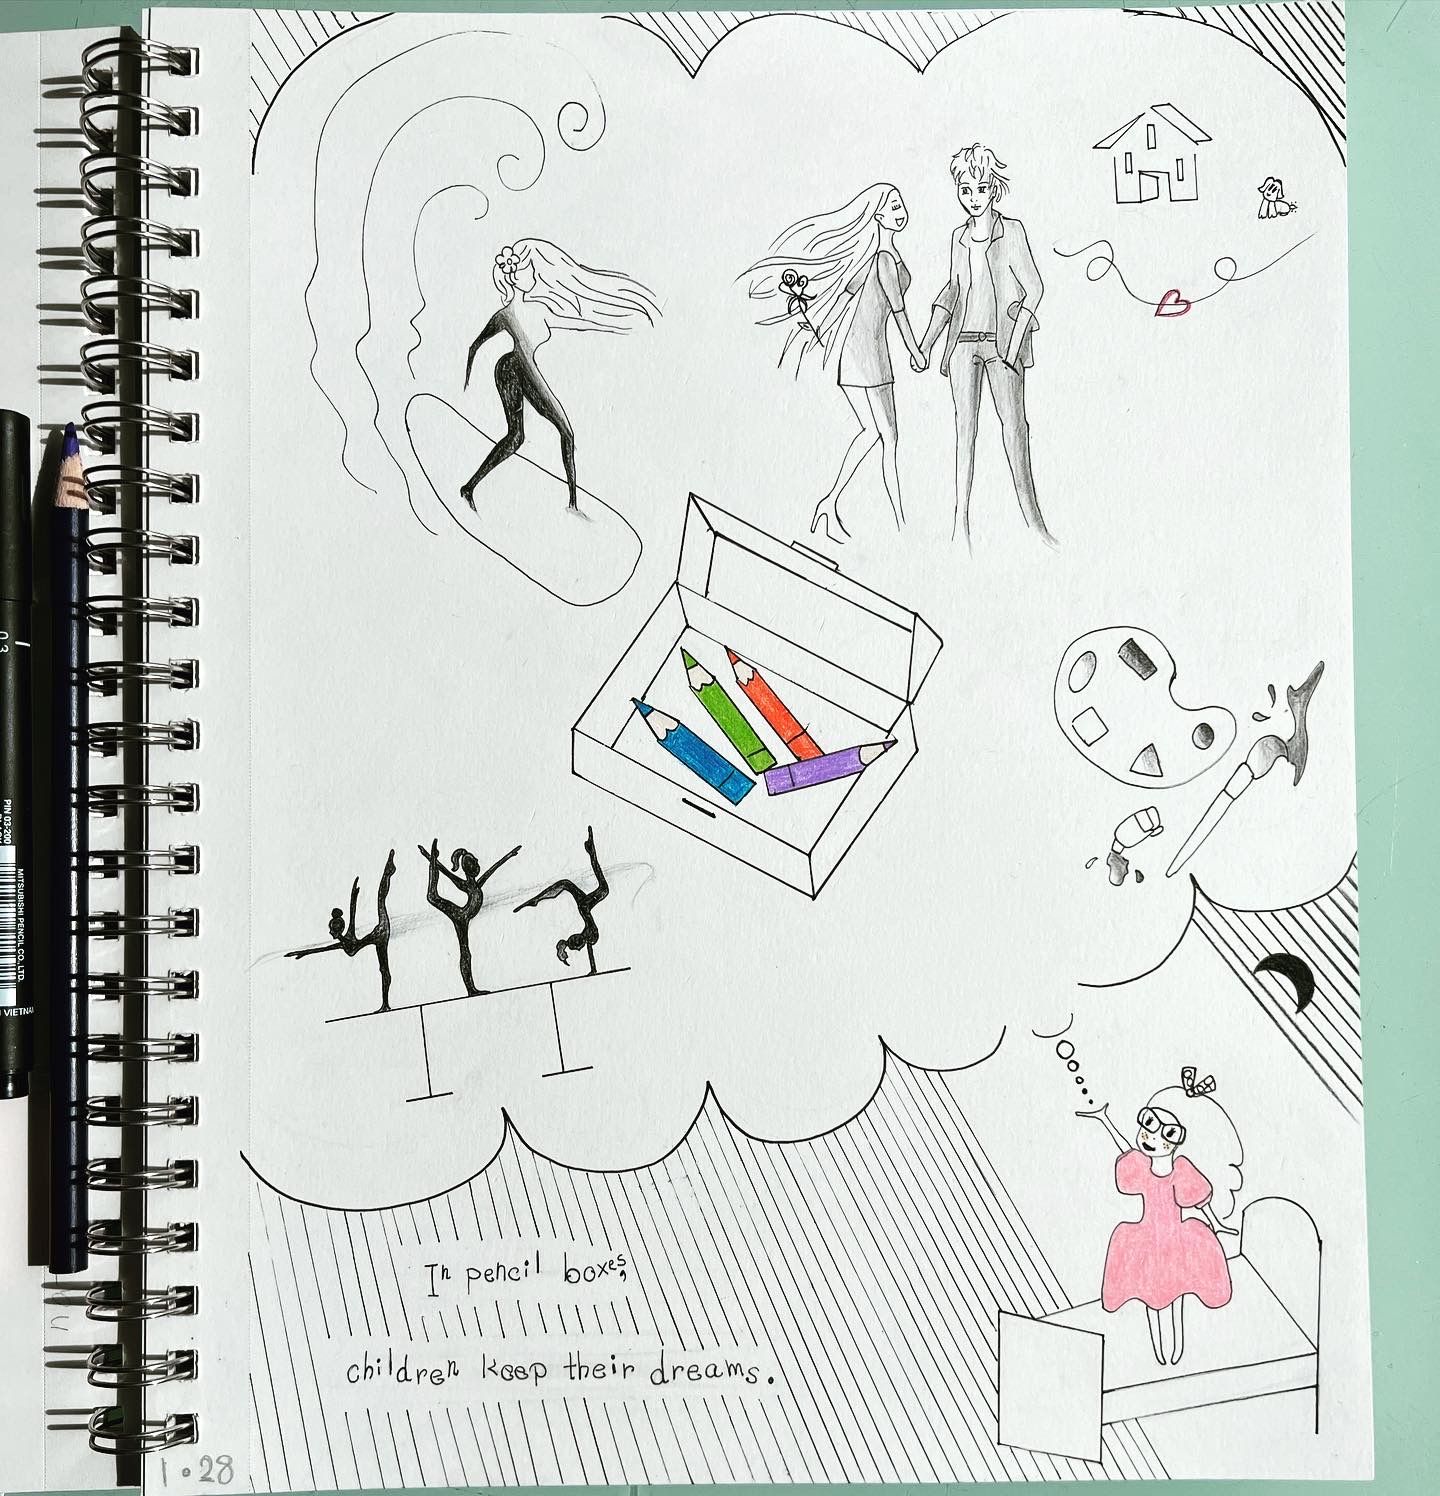 In pencil boxes,
children keep their dreams.
1.28
0.3
PIN 03-200
MITSUBISHI PENCIL CO. LTD.
VIETNAM